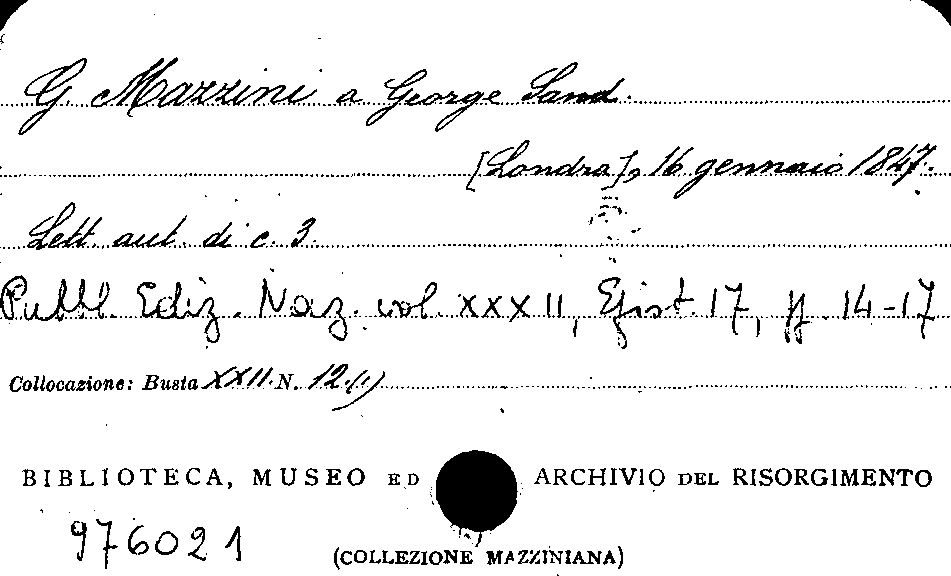 G. Mazzini a George Sand.
[Londra], 16 gennaio 1847.
Lett. aut. di c. 3.
Pubbl. Ediz. Naz. vol. XXXII, Epist. 17, pp. 14-17
Collocazione: Busta XXII N. 12.(1)
BIBLIOTECA, MUSEO ED ARCHIVIO DEL RISORGIMENTO
976021
(COLLEZIONE MAZZINIANA)